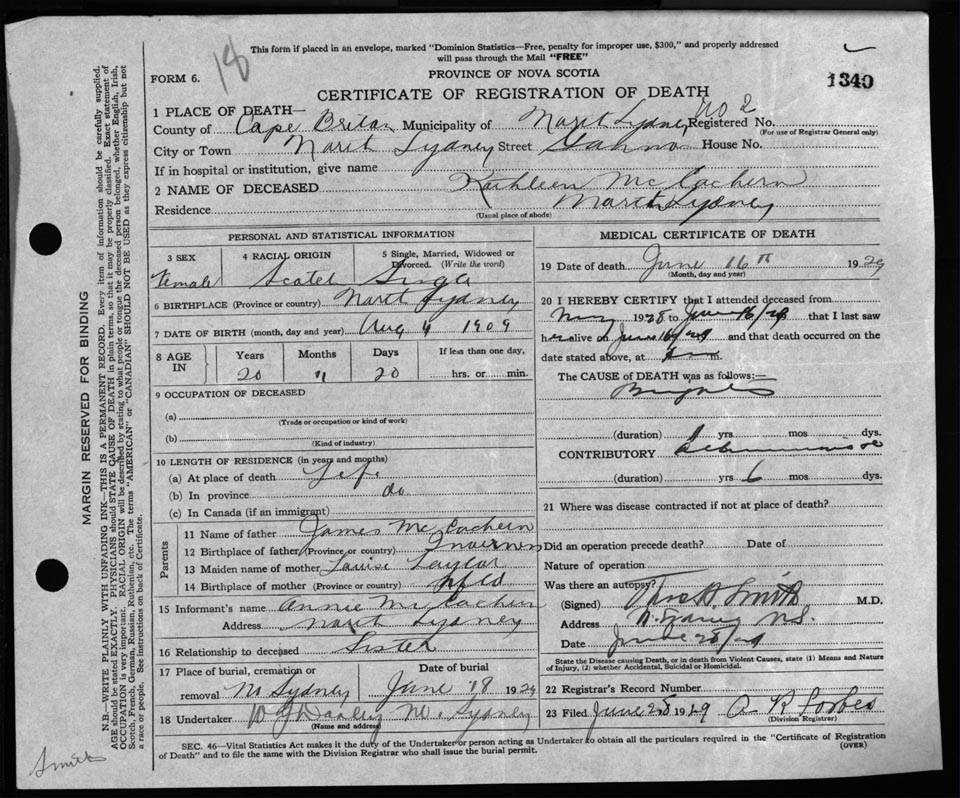 18
This form if placed in an envelope, marked "Dominion Statistics—Free, penalty for improper use, $300," and properly addressed
will pass through the Mail "FREE"
FORM 6.
PROVINCE OF NOVA SCOTIA
1340
CERTIFICATE OF REGISTRATION OF DEATH
1 PLACE OF DEATH—
County of Cape Breton Municipality of North Sydney Registered No. No 2
(For use of Registrar General only)
City or Town North Sydney Street House No.
If in hospital or institution, give name
2 NAME OF DECEASED Kathleen Mc Eachern
Residence North Sydney
(Usual place of abode)
PERSONAL AND STATISTICAL INFORMATION
3 SEX 4 RACIAL ORIGIN 5 Single, Married, Widowed or
Divorced. (Write the word)
Female Scotch Single
6 BIRTHPLACE (Province or country) North Sydney
7 DATE OF BIRTH (month, day and year) Aug 4 1909
8 AGE IN Years Months Days If less than one day,
20 11 20 hrs. or min.
9 OCCUPATION OF DECEASED
(a)
(Trade or occupation or kind of work)
(b)
(Kind of industry)
10 LENGTH OF RESIDENCE (in years and months)
(a) At place of death Life
(b) In province do
(c) In Canada (if an immigrant)
Parents
11 Name of father James Mc Eachern
12 Birthplace of father (Province or country) Inverness
13 Maiden name of mother Louise Taylor
14 Birthplace of mother (Province or country) Nfld
15 Informant's name Annie Mc Eachern
Address North Sydney
16 Relationship to deceased Sister
17 Place of burial, cremation or Date of burial
removal N Sydney June 18 1929
18 Undertaker N. Sydney
(Name and address)
MEDICAL CERTIFICATE OF DEATH
19 Date of death June 16th 1929
(Month, day and year)
20 I HEREBY CERTIFY that I attended deceased from
1928 to June 16/29 that I last saw
her alive on June 16/29 and that death occurred on the
date stated above, at m
The CAUSE of DEATH was as follows:—
Brights
(duration) 1 yrs mos dys.
CONTRIBUTORY
(duration) yrs 6 mos dys.
21 Where was disease contracted if not at place of death?
Did an operation precede death? Date of
Nature of operation
Was there an autopsy?
(Signed) Smith M.D.
Address N. Sydney N.S.
Date June 28/29
State the Disease causing Death, or in death from Violent Causes, state (1) Means and Nature
of Injury, (2) whether Accidental, Suicidal or Homicidal.
22 Registrar's Record Number
23 Filed June 28 1929 A R Forbes
(Division Registrar)
SEC. 46—Vital Statistics Act makes it the duty of the Undertaker or person acting as Undertaker to obtain all the particulars required in the "Certificate of Registration
of Death" and to file the same with the Division Registrar who shall issue the burial permit.
(OVER)
MARGIN RESERVED FOR BINDING
N.B.—WRITE PLAINLY WITH UNFADING INK—THIS IS A PERMANENT RECORD. Every item of information should be carefully supplied.
AGE should be stated EXACTLY. PHYSICIANS should STATE CAUSE OF DEATH in plain terms, so that it may be properly classified. Exact statement of
OCCUPATION is very important. RACIAL ORIGIN will be described by stating to what people or tongue the deceased person belonged, whether English, Irish,
Scotch, French, German, Russian, Ruthenian, etc. The terms "AMERICAN" or "CANADIAN" SHOULD NOT BE USED as they express citizenship but not
a race or people. See instructions on back of Certificate.
Smith